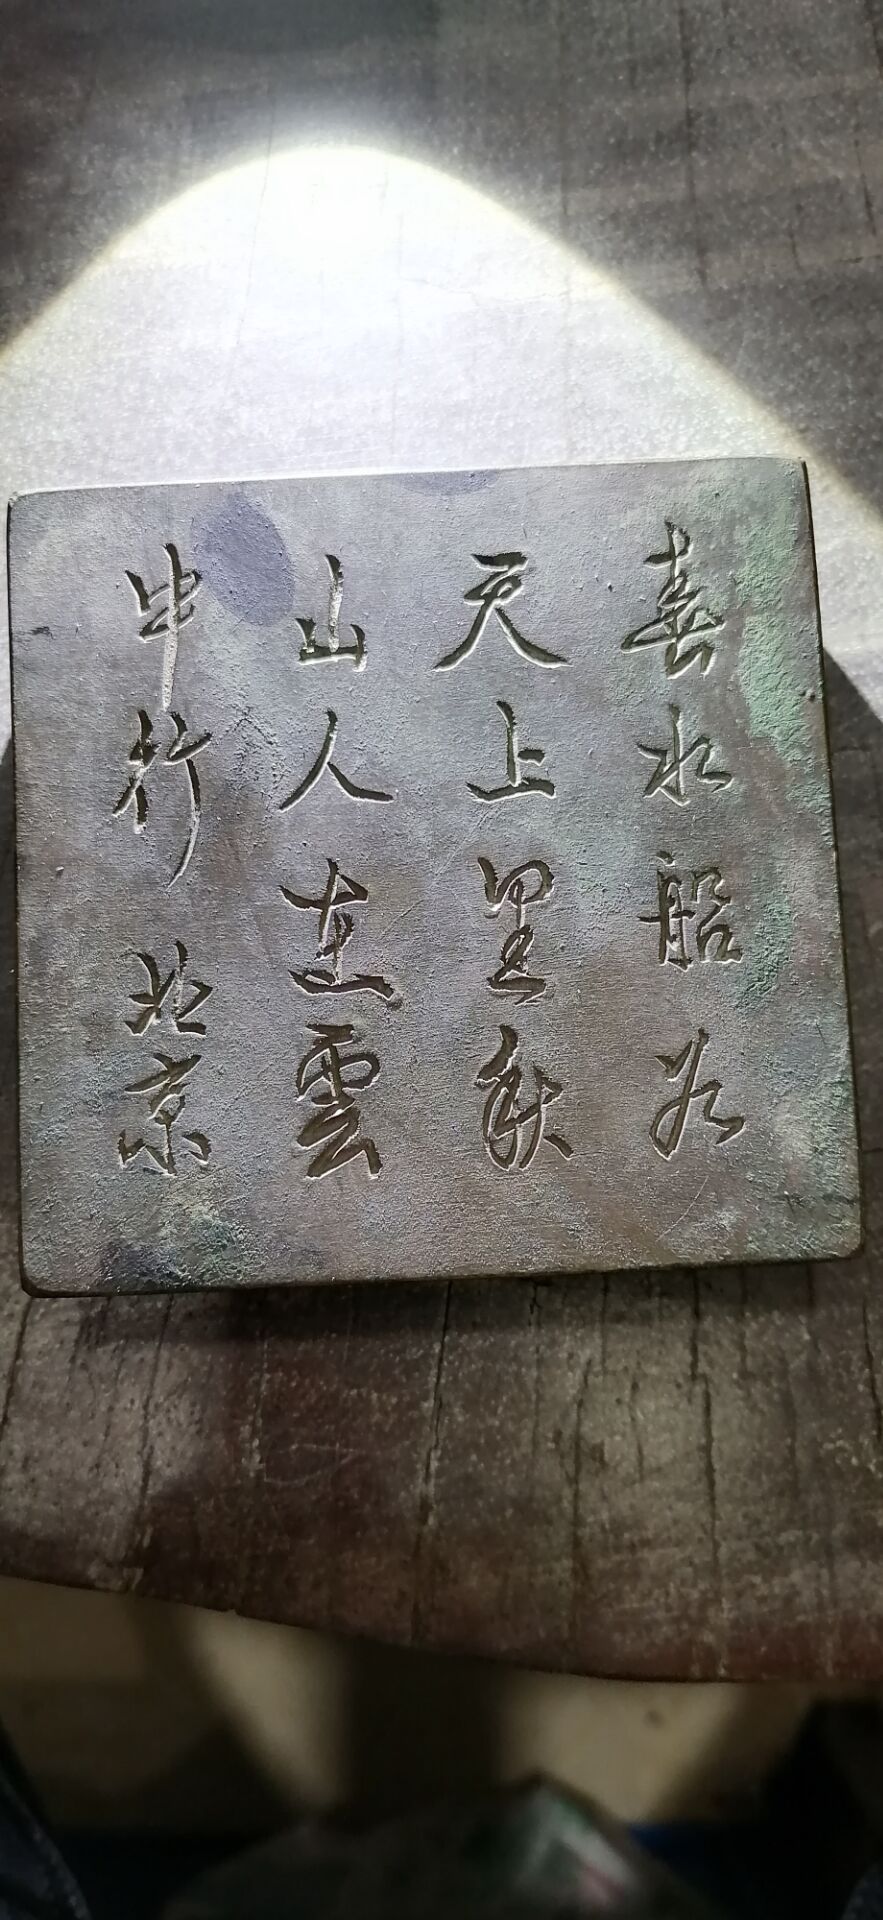 春水船如
天上坐秋
山人在雲
中行 北京